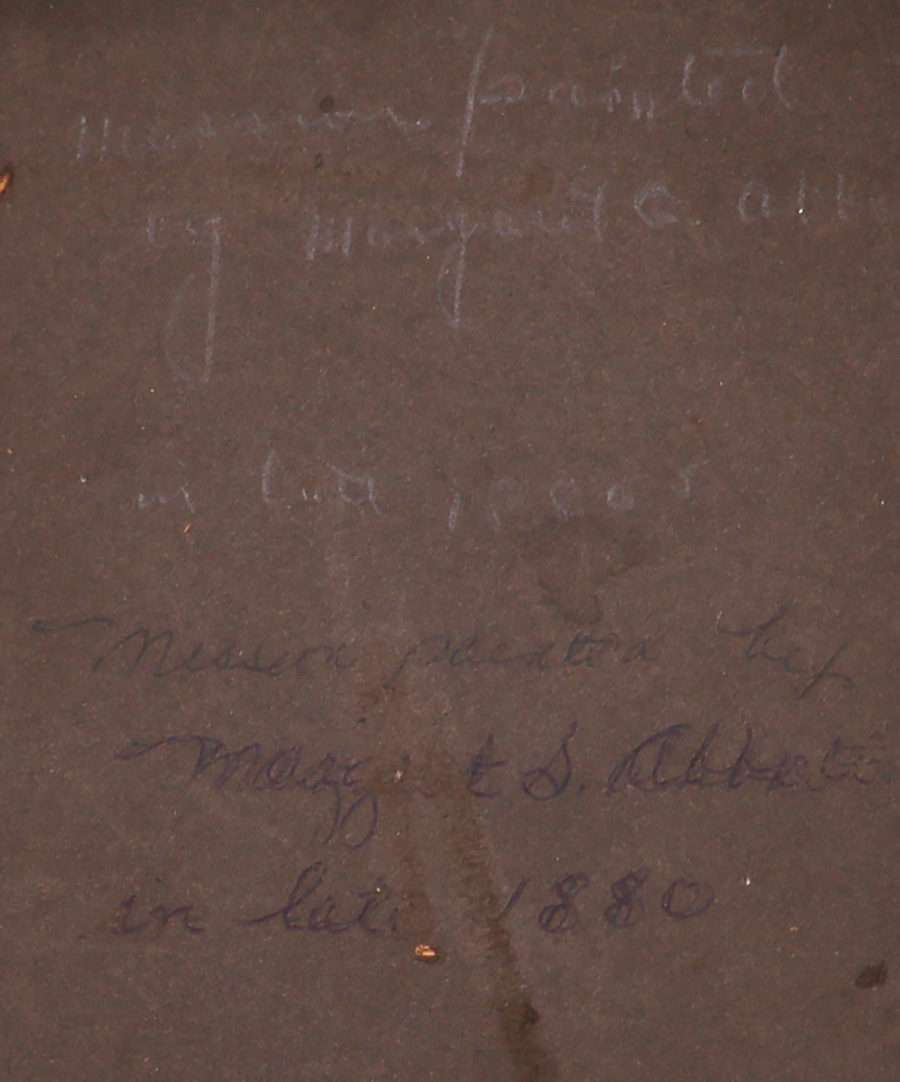 Mission painted
by Margaret S. Abb
in late 1880s
Mission painted by
Margaret S. Abbott
in late 1880